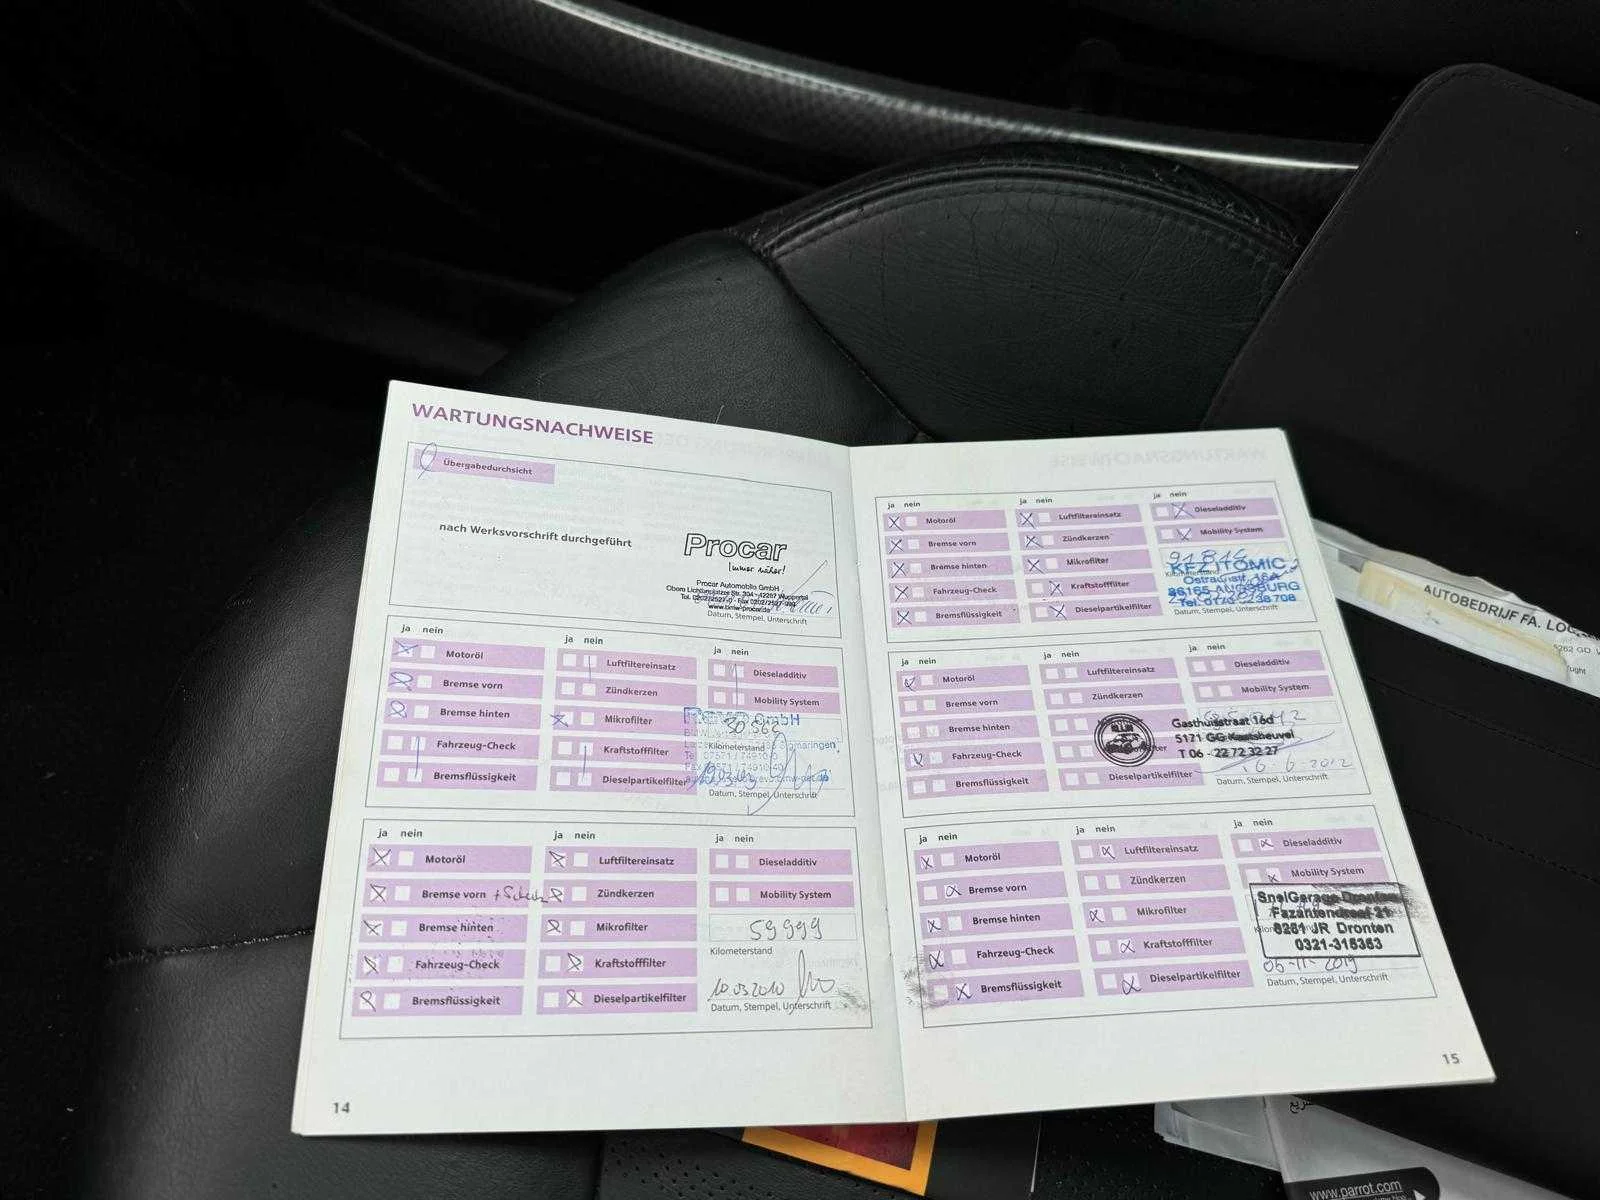 WARTUNGSNACHWEISE
Übergabedurchsicht
nach Werksvorschrift durchgeführt
Procar
Immer näher!
Procar Automobile GmbH
www.bmw-procar.de
Datum, Stempel, Unterschrift
ja nein
Motoröl
Bremse vorn
Bremse hinten
Fahrzeug-Check
Bremsflüssigkeit
ja nein
Luftfiltereinsatz
Zündkerzen
Mikrofilter
Kraftstofffilter
Dieselpartikelfilter
ja nein
Dieseladditiv
Mobility System
GmbH
Kilometerstand
Datum, Stempel, Unterschrift
ja nein
Motoröl
Bremse vorn
Bremse hinten
Fahrzeug-Check
Bremsflüssigkeit
ja nein
Luftfiltereinsatz
Zündkerzen
Mikrofilter
Kraftstofffilter
Dieselpartikelfilter
ja nein
Dieseladditiv
Mobility System
59999
Kilometerstand
10.03.2010
Datum, Stempel, Unterschrift
14
ja nein
Motoröl
Bremse vorn
Bremse hinten
Fahrzeug-Check
Bremsflüssigkeit
ja nein
Luftfiltereinsatz
Zündkerzen
Mikrofilter
Kraftstofffilter
Dieselpartikelfilter
ja nein
Dieseladditiv
Mobility System
KFZ ITOMIC
86165 AUGSBURG
Datum, Stempel, Unterschrift
ja nein
Motoröl
Bremse vorn
Bremse hinten
Fahrzeug-Check
Bremsflüssigkeit
ja nein
Luftfiltereinsatz
Zündkerzen
Dieselpartikelfilter
ja nein
Dieseladditiv
Mobility System
Gasthuisstraat 16d
5171 GG Kaatsheuvel
T 06 - 22 72 32 27
16-6-2012
Datum, Stempel, Unterschrift
ja nein
Motoröl
Bremse vorn
Bremse hinten
Fahrzeug-Check
Bremsflüssigkeit
ja nein
Luftfiltereinsatz
Zündkerzen
Mikrofilter
Kraftstofffilter
Dieselpartikelfilter
ja nein
Dieseladditiv
Mobility System
SnelGarage Dronten
Fazantendreef 21
8251 JR Dronten
0321-315353
05-11-2019
Datum, Stempel, Unterschrift
15
AUTOBEDRIJF FA.
www.parrot.com